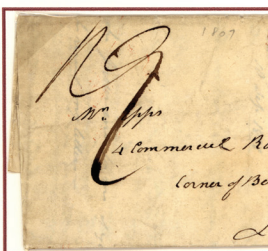 1807
Mrs. Epps
4 Commercial Ro
Corner of Be
L